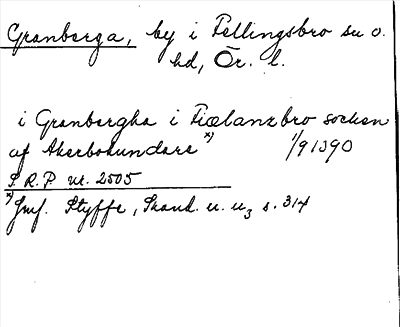 Granberga, by i Fellingsbro sn o.
hd, Ör. l.
i Granbergha i Fiælanzbro socken
af Akerbohundare *) 1/9 1390
S.R.P. nr. 2505
*) Jmf. Styffe, Skand. u. u3 s. 314